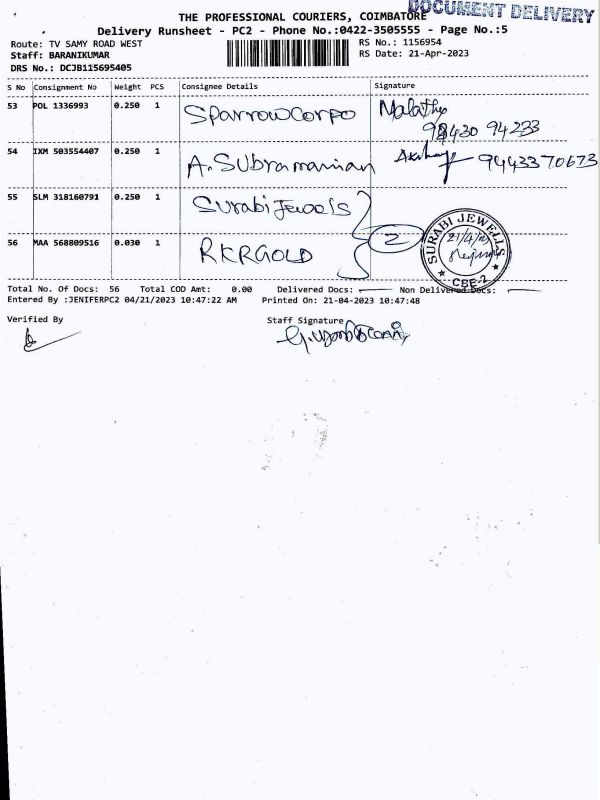 DOCUMENT DELIVERY
THE PROFESSIONAL COURIERS, COIMBATORE
Delivery Runsheet - PC2 - Phone No.:0422-3505555 - Page No.:5
Route: TV SAMY ROAD WEST RS No.: 1156954
Staff: BARANIKUMAR RS Date: 21-Apr-2023
DRS No.: DCJB115695405
S No Consignment No Weight PCS Consignee Details Signature
53 POL 1336993 0.250 1 Sparrow Corpo Malathy
94233
54 IXM 503554407 0.250 1 A. Subramanian 9443370673
55 SLM 318160791 0.250 1 Surabi Jewels
56 MAA 568809516 0.030 1 RKRGOLD 2
SURABI JEWELLS
21/4/23
CBE-2
Total No. Of Docs: 56 Total COD Amt: 0.00 Delivered Docs: Non Delivered Docs:
Entered By :JENIFERPC2 04/21/2023 10:47:22 AM Printed On: 21-04-2023 10:47:48
Verified By Staff Signature